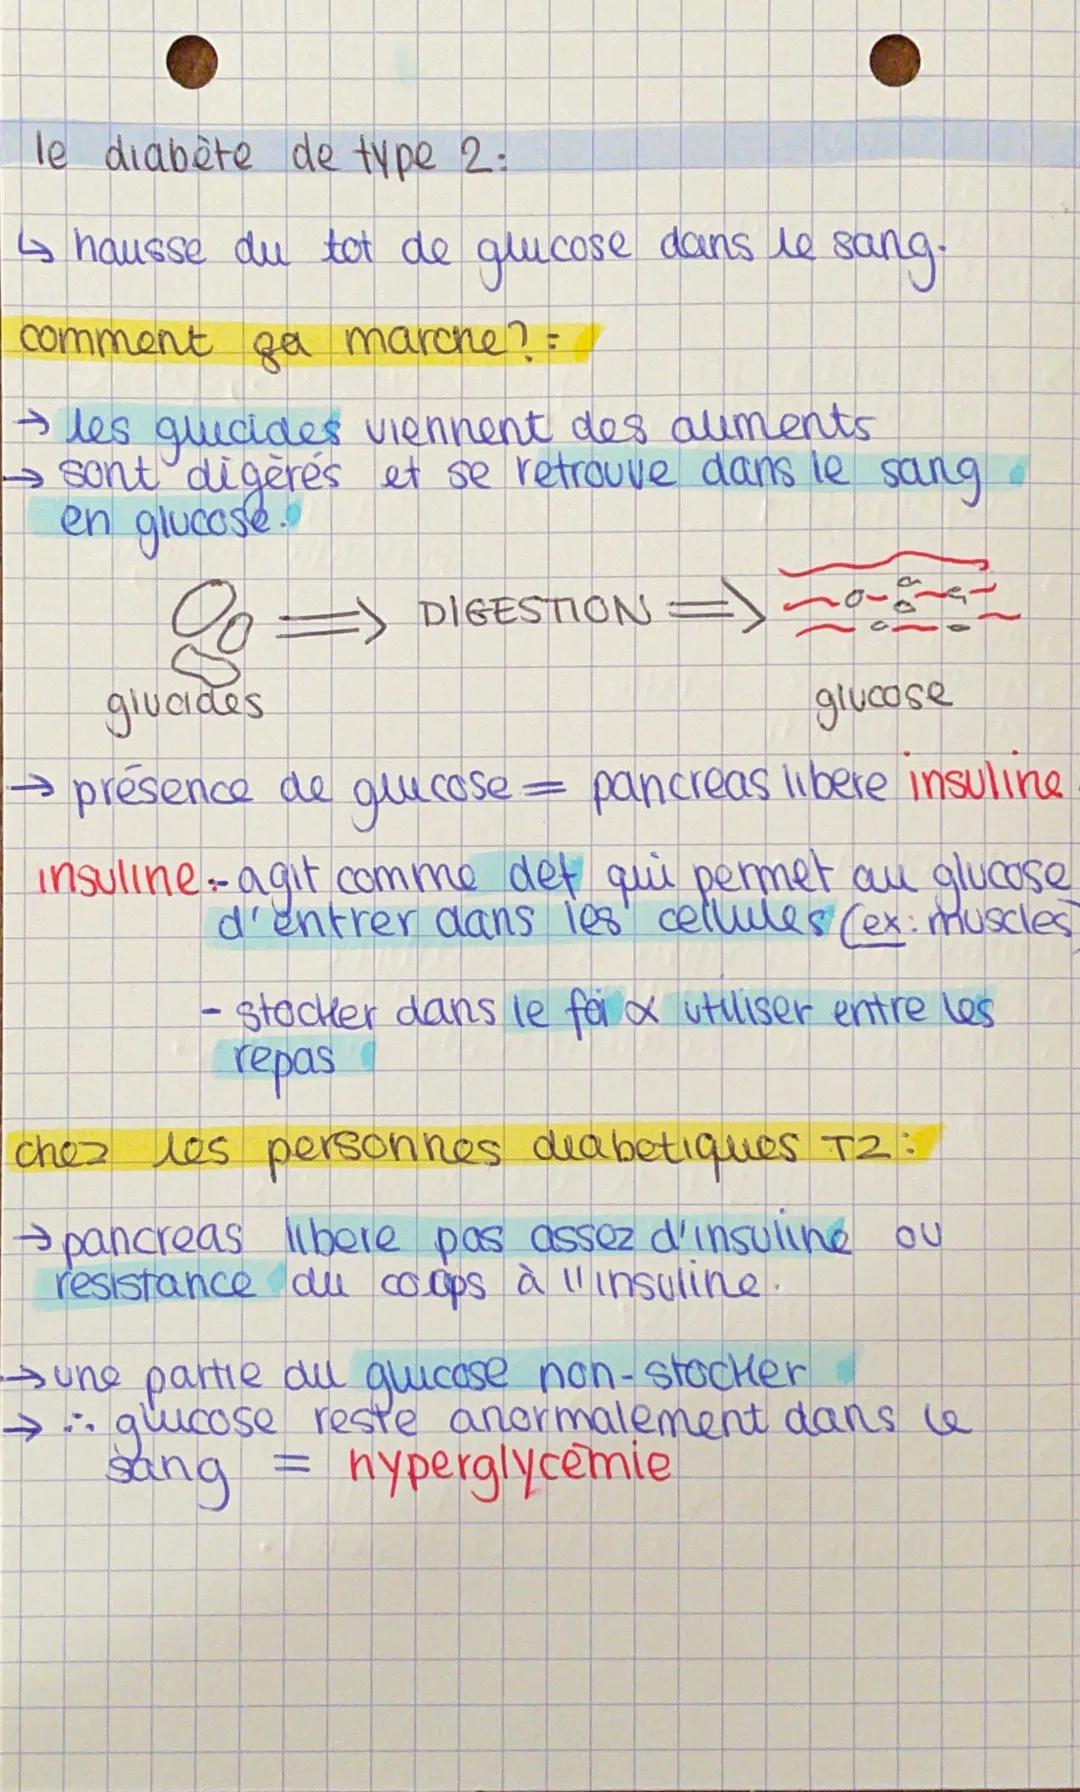 le diabète de type 2:
↳ hausse du tot de glucose dans le sang.
comment ça marche? :
→ les glucides viennent des aliments
→ sont digérés et se retrouve dans le sang
en glucose.
⇒ DIGESTION ⇒
glucides glucose
→ présence de glucose = pancreas libere insuline.
insuline :- agit comme clef qui permet au glucose
d'entrer dans les cellules (ex: muscles)
- stocker dans le foi & utiliser entre les
repas
chez les personnes diabetiques T2:
→ pancreas libere pas assez d'insuline ou
resistance du corps à l'insuline.
→ une partie du glucose non-stocker
→ ∴ glucose reste anormalement dans le
sang = hyperglycémie